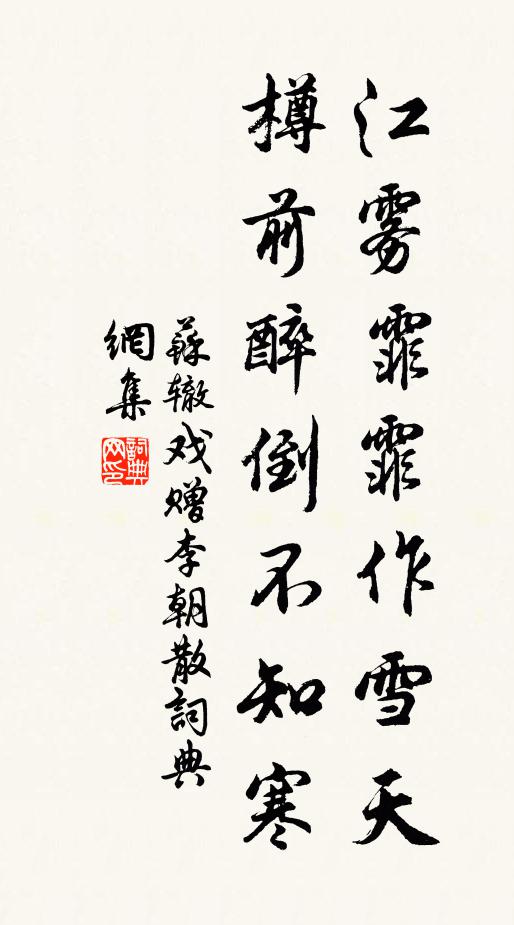 江雾霏霏作雪天
樽前醉倒不知寒
蘇辙戏赠李朝散詞典
網集
詞典
网印